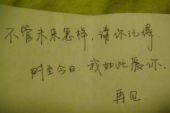 不管未来怎样，请你记得
时至今日 我如此爱你.
再见